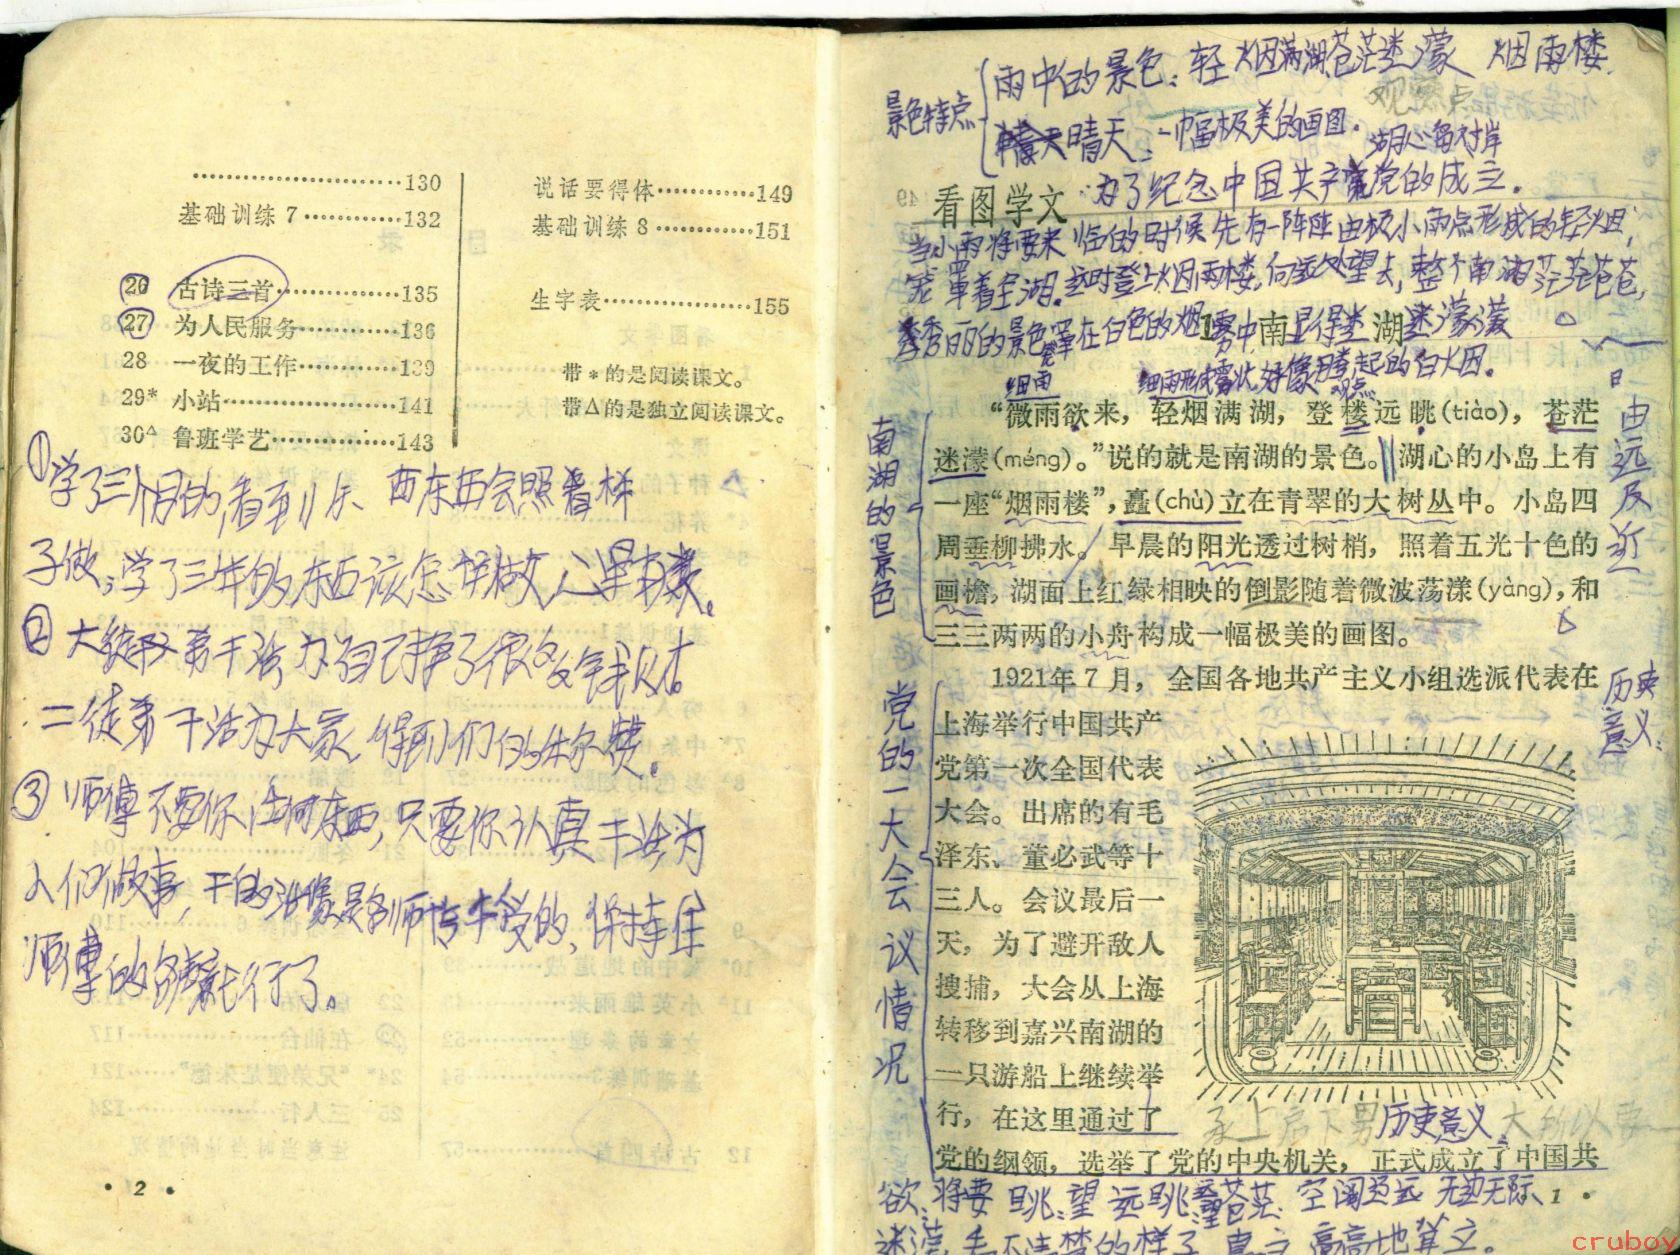 ……………………130
基础训练 7…………132
26 古诗三首…………135
27 为人民服务…………136
28 一夜的工作…………139
29* 小站………………141
30△ 鲁班学艺……………143
说话要得体…………149
基础训练 8…………151
生字表………………155
带 * 的是阅读课文。
带△的是独立阅读课文。
①学了三个月的,看到 西东西会照着样
子做,学了三年的东西该怎样做文心里有数。
② 大徒弟干活为自己挣了很多钱财。
二徒弟干活为大家,得到 们的 赞。
③ 师傅不要你任何东西,只要你认真干活为
人们做事,干的活 是 师傅 受的,保持住
师傅的名 就行了。
• 2 •
雨中的景色:轻烟满湖苍茫迷濛 烟雨楼
观察点
景色特点
晴天 一幅极美的画图。
湖心岛对岸
为了纪念中国共产党的成立。
看图学文
当小雨将要来临的时候先有一阵阵由极小雨点形成的轻烟,
笼罩着全湖。这时登上烟雨楼,向远处望去,整个南湖茫茫苍苍,
秀丽的景色笼罩在白色的烟雾中,显得迷迷濛濛
1 南湖
细雨 细雨形成雾状,好像腾起的白烟。
“微雨欲来,轻烟满湖,登楼远眺(tiào),苍茫
迷濛(méng)。”说的就是南湖的景色。湖心的小岛上有
一座“烟雨楼”,矗(chù)立在青翠的大树丛中。小岛四
周垂柳拂水。早晨的阳光透过树梢,照着五光十色的
画檐,湖面上红绿相映的倒影随着微波荡漾(yàng),和
三三两两的小舟构成一幅极美的画图。
南湖的景色
由远及近
1921年 7 月,全国各地共产主义小组选派代表在
上海举行中国共产
党第一次全国代表
大会。出席的有毛
泽东、董必武等十
三人。会议最后一
天,为了避开敌人
搜捕,大会从上海
转移到嘉兴南湖的
一只游船上继续举
行,在这里通过了
党的纲领,选举了党的中央机关,正式成立了中国共
党的一大会议情况
历史意义:
承上启下 历史意义
欲:将要 眺:望 远眺: 苍茫:空阔辽远 无边无际
迷濛:看不清楚的样子 矗立:高高地耸立。
1 •
cruboy